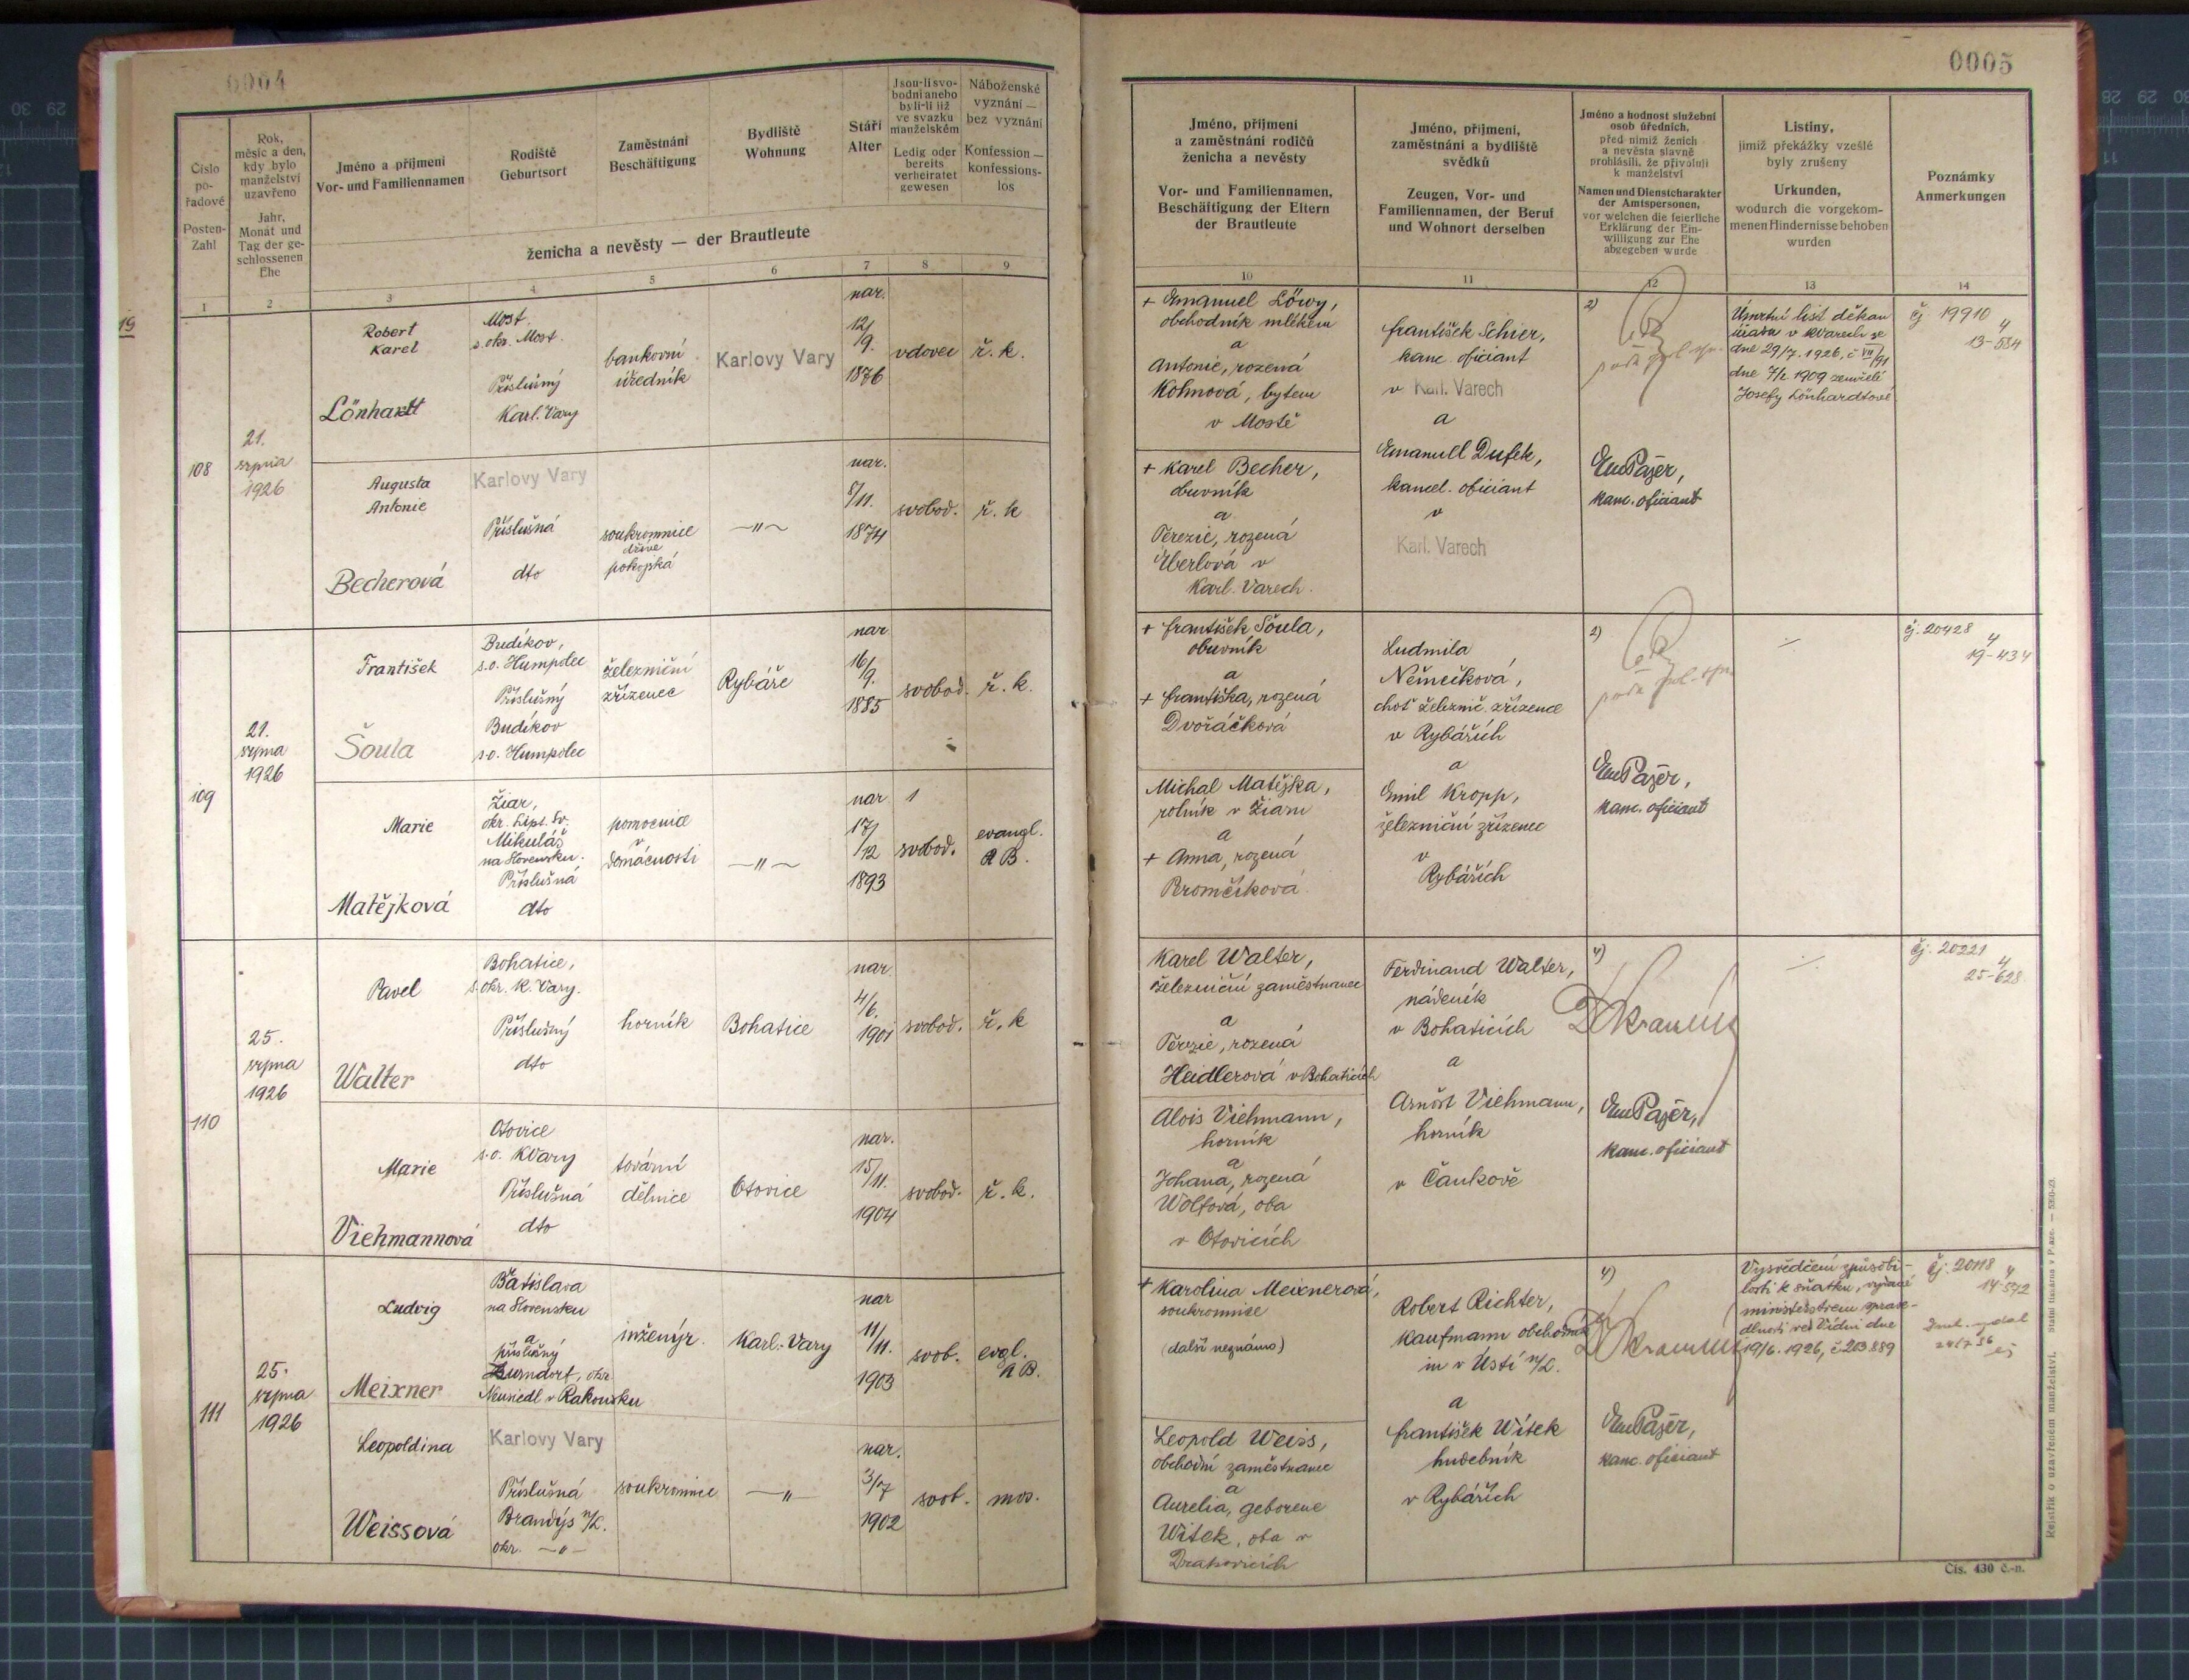 0004
Číslo
po-
řadové
Posten-
Zahl
Rok,
měsíc a den,
kdy bylo
manželství
uzavřeno
Jahr,
Monat und
Tag der ge-
schlossenen
Ehe
Jméno a příjmení
Vor- und Familiennamen
Rodiště
Geburtsort
Zaměstnání
Beschäftigung
Bydliště
Wohnung
Stáří
Alter
Jsou-li svo-
bodni anebo
byli-li již
ve svazku
manželském
Ledig oder
bereits
verheiratet
gewesen
Náboženské
vyznání —
bez vyznání
Konfession —
konfessions-
los
ženicha a nevěsty — der Brautleute
1 2 3 4 5 6 7 8 9
19
108
21.
srpna
1926
Robert
Karel
Lönhardt
Most.
s. okr. Most.
Příslušný
Karl. Vary
bankovní
úředník
Karlovy Vary
nar.
12/
9.
1876
vdovec
ř. k.
Augusta
Antonie
Becherová
Karlovy Vary
Příslušná
dto
soukromnice
dříve
pokojská
—"—
nar.
8/11.
1874
svobod.
ř. k
109
21.
srpna
1926
František
Šoula
Budíkov,
s.o. Humpolec
Příslušný
Budíkov
s.o. Humpolec
železniční
zřízenec
Rybáře
nar
16/
9.
1885
svobod.
ř. k.
Marie
Matějková
Žiar,
okr. Lipt. Sv.
Mikuláš
na Slovensku.
Příslušná
dto
pomocnice
v
domácnosti
—"—
nar 1
17/
/12
1893
svobod.
evangl.
A B.
110
25.
srpna
1926
Pavel
Walter
Bohatice,
s. okr. K. Vary.
Příslušný
dto
horník
Bohatice
nar.
4/6.
1901
svobod.
ř. k
Marie
Viehmannová
Otovice
s.o. KVary
Příslušná
dto
tovární
dělnice
Otovice
nar.
15/
/11.
1904
svobod.
ř. k.
111
25.
srpna
1926
Ludvig
Meixner
Bratislava
na Slovensku
a
příslušný
Zurndorf, okr.
Neusiedl v Rakousku
inženýr.
Karl. Vary
nar
11/
/11.
1903
svob.
evgl.
A B.
Leopoldina
Weissová
Karlovy Vary
Příslušná
Brandýs n/L.
okr. —"—
soukromnice
—"—
nar.
3/7
1902
svob.
mos.
0005
Jméno, příjmení
a zaměstnání rodičů
ženicha a nevěsty
Vor- und Familiennamen,
Beschäftigung der Eltern
der Brautleute
Jméno, příjmení,
zaměstnání a bydliště
svědků
Zeugen, Vor- und
Familiennamen, der Beruf
und Wohnort derselben
Jméno a hodnost služební
osob úředních,
před nimiž ženich
a nevěsta slavně
prohlásili, že přivolují
k manželství
Namen und Dienstcharakter
der Amtspersonen,
vor welchen die feierliche
Erklärung der Ein-
willigung zur Ehe
abgegeben wurde
Listiny,
jimiž překážky vzešlé
byly zrušeny
Urkunden,
wodurch die vorgekom-
menen Hindernisse behoben
wurden
Poznámky
Anmerkungen
10 11 12 13 14
+ Emanuel Löwy,
obchodník mlékem
a
Antonie, rozená
Kohnová, bytem
v Mostě
+ Karel Becher,
obuvník
a
Terezie, rozená
Überlová v
Karl. Varech.
František Schier,
kanc. oficiant
v Karl. Varech
a
Emanuell Dufek,
kancel. oficiant
v
Karl. Varech
2)
EmPajer,
kanc. oficiant
Úmrtní list děkan
úřadu v KVarech ze
dne 29/7. 1926, č VII/91
dne 7/2 1909 zemřelé
Josefy Lönhardtové
čj 19910
4
13-534
+ František Šoula,
obuvník
a
+ Františka, rozená
Dvořáčková
Michal Matějka,
rolník v Žiaru
a
+ Anna, rozená
Peromčíková
Ludmila
Němečková,
choť železnič. zřízence
v Rybářích
a
Emil Kropp,
železniční zřízenec
v
Rybářích
2)
EmPajer,
kanc. oficiant
čj. 20428
4
19-434
Karel Walter,
železniční zaměstnanec
a
Terezie, rozená
Heidlerová v Bohaticích
Alois Viehmann,
horník
a
Johana, rozená
Wolfová, oba
v Otovicích
Ferdinand Walter,
nádeník
v Bohaticích
a
Arnošt Viehmann,
horník
v Čankově
4)
EmPajer,
kanc. oficiant
čj. 20221
4
25-628
+ Karolina Meixnerová,
soukromnice
(další neznámo)
Leopold Weiss,
obchodní zaměstnanec
a
Aurelia, geborene
Witek, oba v
Drahovicích
Robert Richter,
Kaufmann obchodník
in v Ústí n/L.
a
František Witek
hudebník
v Rybářích
4)
EmPajer,
kanc. oficiant
Vysvědčení způsobi-
losti k sňatku, vydané
ministerstvem sprave-
dlnosti ve Vídni dne
19/6. 1926, č 203.889
čj. 20118
4
14-592
Rejstřík o uzavřeném manželství. Státní tiskárna v Praze. — 5350-23.
Čís. 430 č.-n.